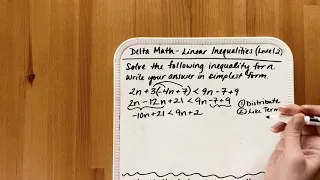 Delta Math - Linear Inequalities (Level 2)
Solve the following inequality for n.
Write your answer in simplest form.
2n + 3(-4n + 7) < 9n - 7 + 9
2n - 12n + 21 < 9n - 7 + 9
① Distribute
-10n + 21 < 9n + 2
② Like Term